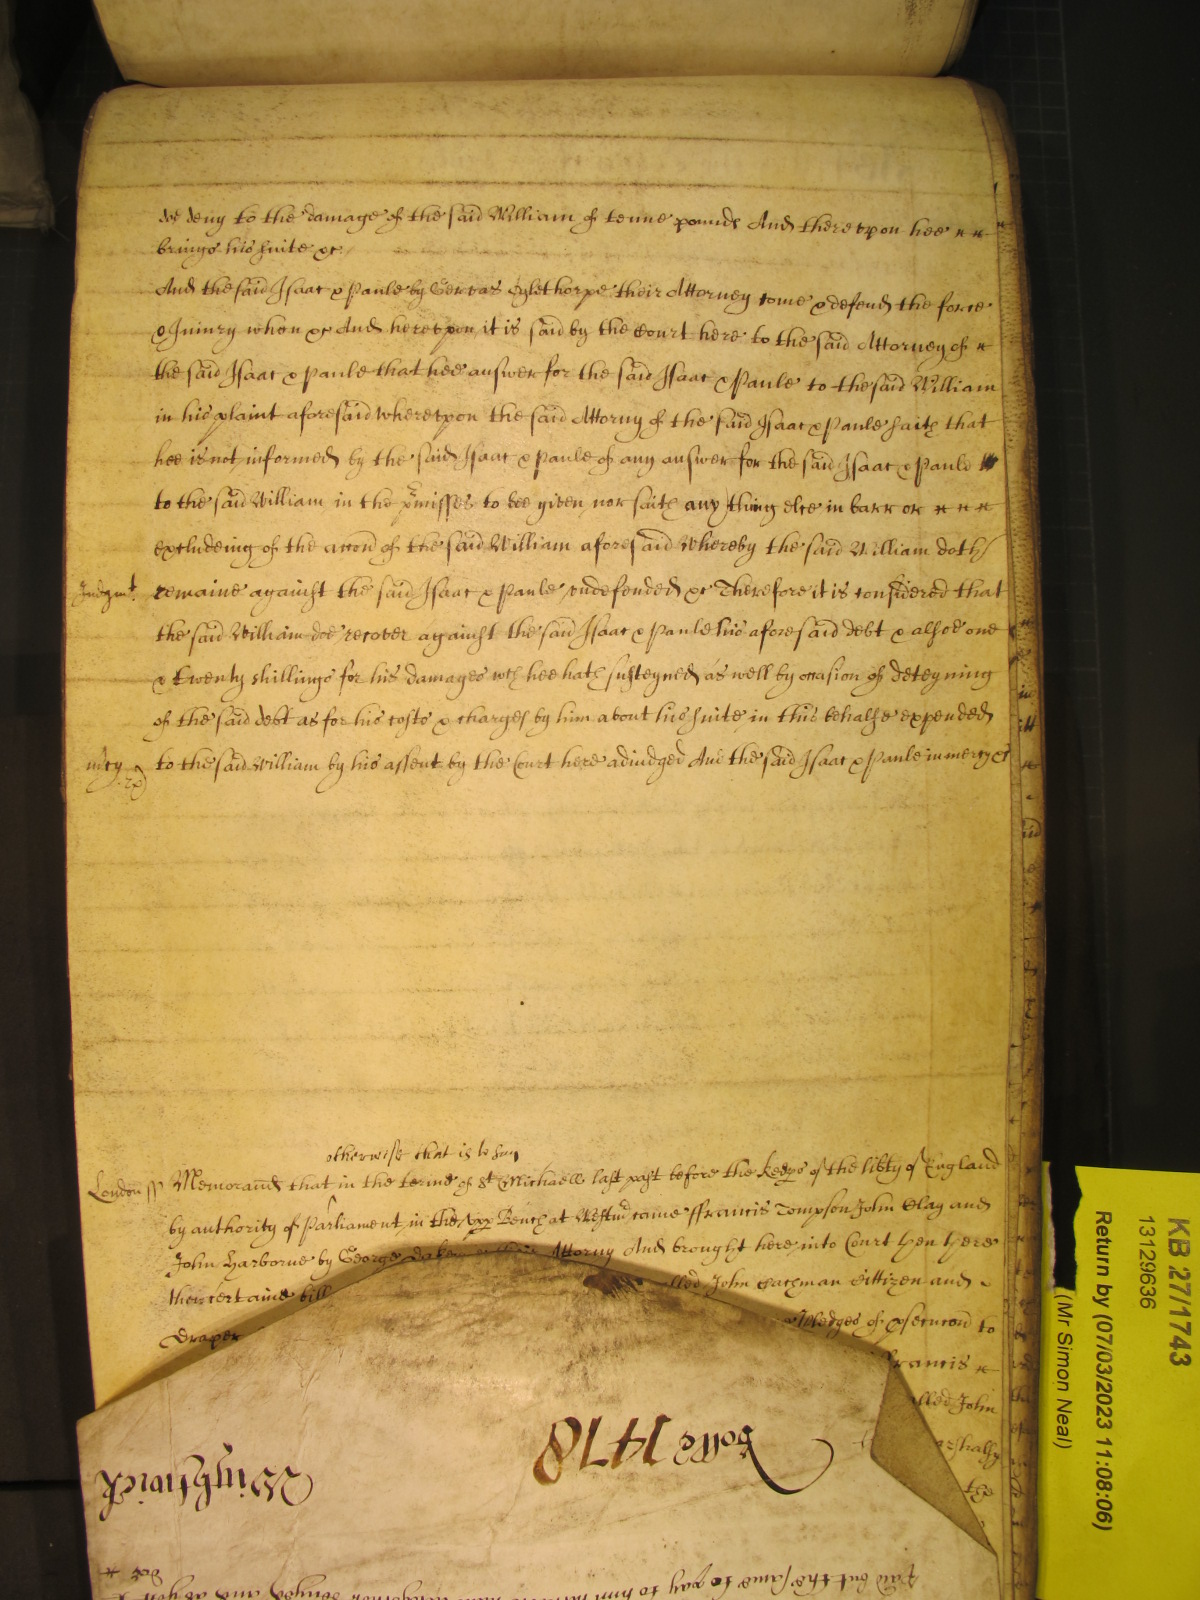 doe deny to the damage of the said William of tenne pounds And thereupon hee
brings his suite &c
And the said Isaac & Paule by Gervas Oglethorpe their Attorney come & defend the force
& Iniury when &c And hereupon it is said by the Court here to the said Attorney of
the said Isaac & Paule that hee answer for the said Isaac & Paule to the said William
in his plaint aforesaid whereupon the said Attorny of the said Isaac & Paule saith that
hee is not informed by the said Isaac & Paule of any answer for the said Isaac & Paule
to the said William in the pmisses to bee given nor saith any thing else in barr or
excludeing of the accon of the said William aforesaid Whereby the said William doth
Iudgmt remaine against the said Isaac & Paule undefended &c Therefore it is considered that
the said William doe recover against the said Isaac & Paule his aforesaid debt & alsoe one
& twenty shillings for his damages wch hee hath susteyned as well by occasion of deteyning
of the said debt as for his costs & charges by him about his suite in this behalfe expended
mcy to the said William by his assent by the Court here adiudged And the said Isaac & Paule in mercy &c
otherwise that is to say
London ss Memorand that in the terme of St Michaell last past before the keeps of the libty of England
by authority of Parliament in the upp Bench at Westm came Francis Tompson John Clay and
John Harborne by George their Attorny And brought here into Court then there
their certaine bill lled John Cachman Cittizen and
Draper pledges of psecucon to
Francis
lled John
the
Rolle 1478
Wightwick
said but the same to pay to him